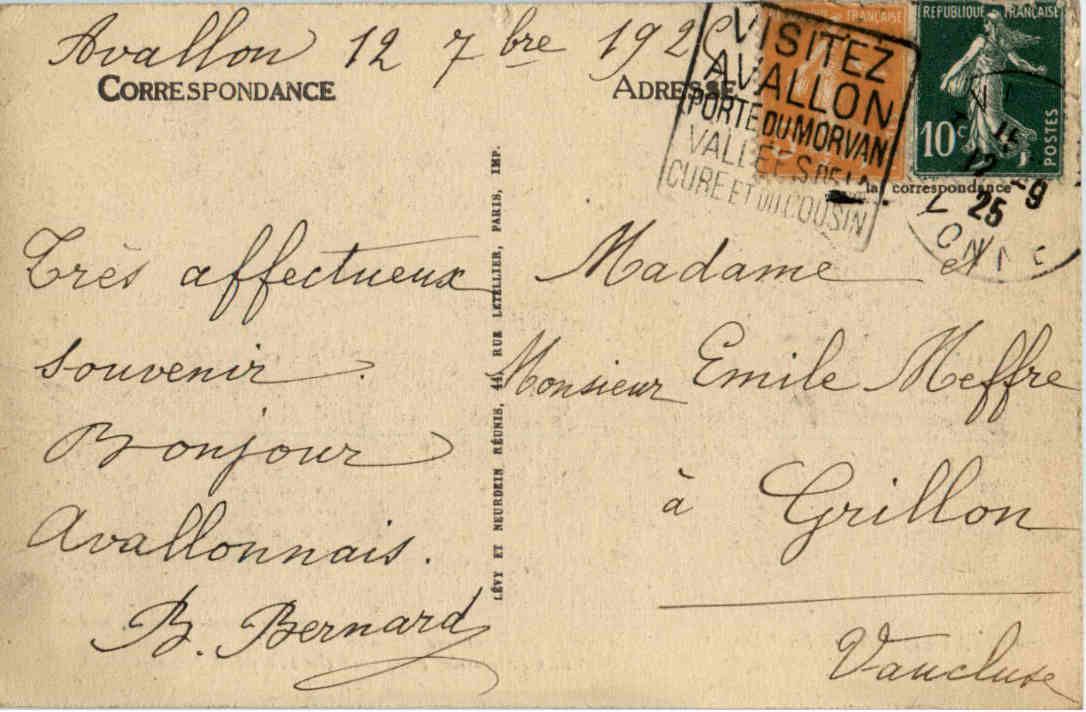 Avallon 12 7bre 192
CORRESPONDANCE
ADRESSE
VISITEZ
AVALLON
PORTE DU MORVAN
VALLÉES DE LA
CURE ET DU COUSIN
FRANÇAISE
REPUBLIQUE FRANÇAISE
10c
POSTES
la correspondance
15
12 -9
25
Très affectueux
souvenir.
Bonjour
Avallonnais.
B. Bernard
LÉVY ET NEURDEIN RÉUNIS, 44, RUE LETELLIER, PARIS, IMP.
Madame et
Monsieur Emile Meffre
à Grillon
Vaucluse